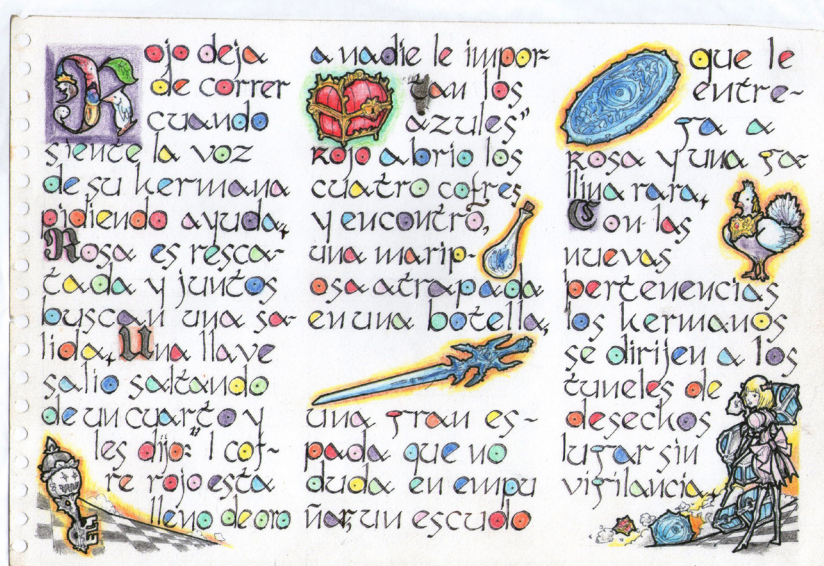 Rojo deja
de correr
cuando
siente la voz
de su hermana
pidiendo ayuda,
Rosa es resca-
tada y juntos
buscan una sa-
lida, Una llave
salio saltando
de un cuarto y
les dijo:"l cof-
re rojo esta
lleno de oro
a nadie le impor-
tan los
azules"
Rojo abrio los
cuatro cofres
y encontro,
una marip-
osa atrapada
en una botella,
una gran es-
pada que no
duda en empu
ñar, un escudo
que le
entre-
ga a
Rosa y una ga-
llina rara,
Con las
nuevas
pertenencias
los hermanos
se dirijen a los
tuneles de
desechos
lugar sin
vigilancia,